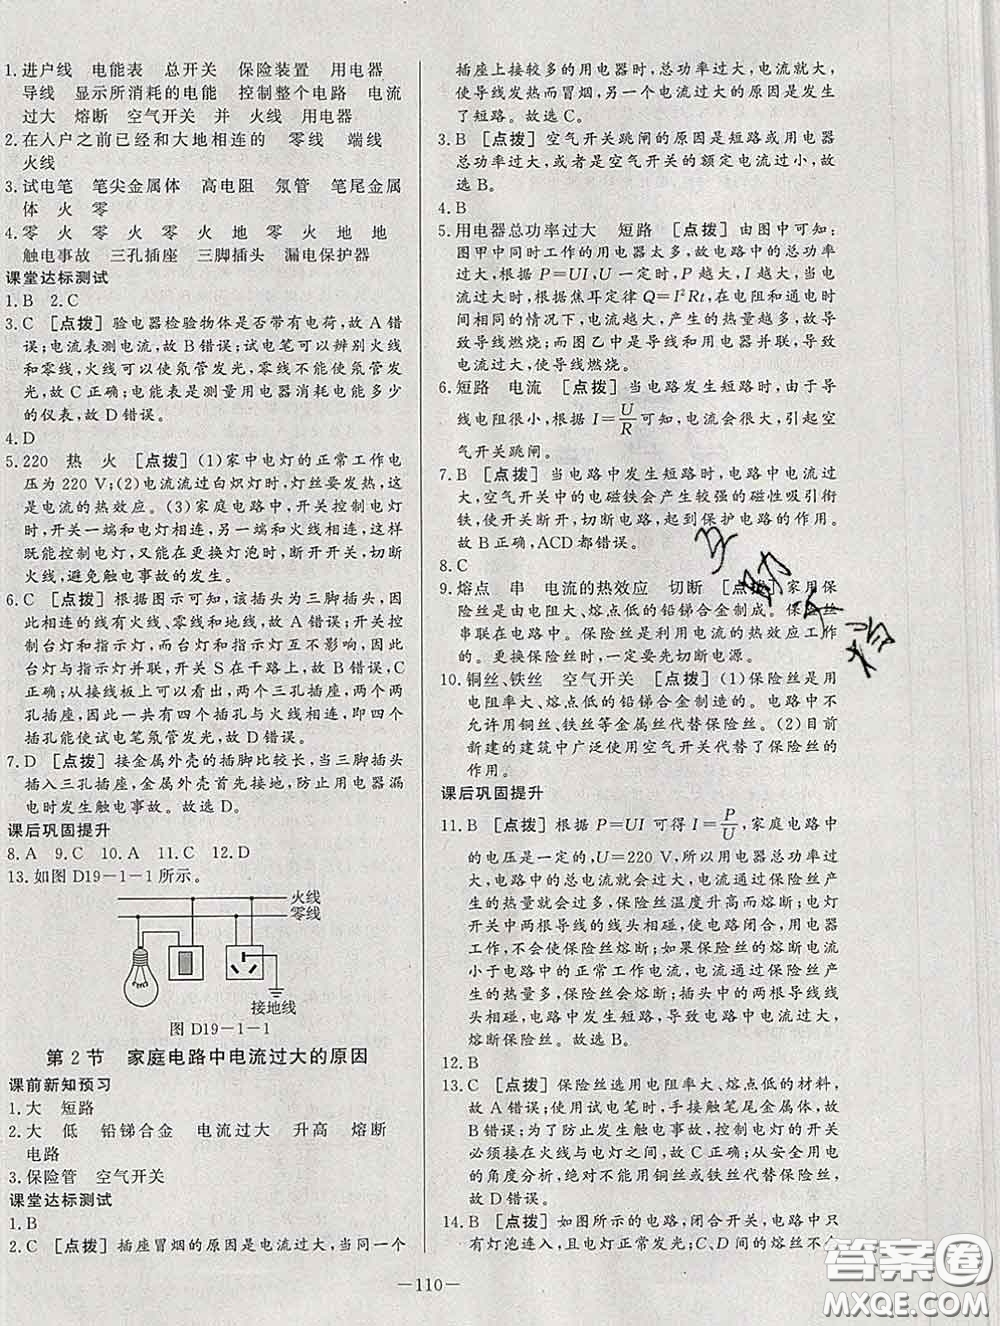 1.进户线 电能表 总开关 保险装置 用电器
导线 显示所消耗的电能 控制整个电路 电流
过大 熔断 空气开关 并 火线 用电器
2.在入户之前已经和大地相连的 零线 端线
火线
3.试电笔 笔尖金属体 高电阻 氖管 笔尾金属
体 火 零
4.零 火 零 火 零 火 地 零 火 地 地
触电事故 三孔插座 三脚插头 漏电保护器
课堂达标测试
1.B 2.C
3.C [点拨] 验电器检验物体是否带有电荷,故A错
误;电流表测电流,故B错误;试电笔可以辨别火线
和零线,火线可以使氖管发光,零线不能使氖管发
光,故C正确;电能表是测量用电器消耗电能多少
的仪表,故D错误。
4.D
5.220 热 火 [点拨] (1)家中电灯的正常工作电
压为220 V;(2)电流流过白炽灯时,灯丝要发热,这
是电流的热效应。(3)家庭电路中,开关控制电灯
时,开关一端和电灯相连,另一端和火线相连,这样
既能控制电灯,又能在更换灯泡时,断开开关,切断
火线,避免触电事故的发生。
6.C [点拨] 根据图示可知,该插头为三脚插头,因
此相连的线有火线、零线和地线,故A错误;开关控
制台灯和指示灯,且台灯和指示灯互不影响,因此
台灯与指示灯并联,开关S在干路上,故B错误,C
正确;从接线板上可以看到,两个三孔插座,两个两
孔插座,因此一共有四个插孔与火线相连,即四个
插孔能使试电笔氖管发光,故D错误。
7.D [点拨] 接金属外壳的插脚比较长,当三脚插头
插入三孔插座时,金属外壳首先接地,防止用电器漏
电时发生触电事故。故选D。
课后巩固提升
8.A 9.C 10.A 11.C 12.D
13.如图D19-1-1所示。
火线
零线
接地线
图 D19-1-1
第2节 家庭电路中电流过大的原因
课前新知预习
1.大 短路
2.大 低 铅锑合金 电流过大 升高 熔断
电路
3.保险管 空气开关
课堂达标测试
1.B
2.C [点拨] 插座冒烟的原因是电流过大,当同一个
插座上接较多的用电器时,总功率过大,电流就大,
使导线发热而冒烟,另一个电流过大的原因是发生
了短路。故选C。
3.B [点拨] 空气开关跳闸的原因是短路或用电器
总功率过大,或者是空气开关的额定电流过小,故
选B。
4.B
5.用电器总功率过大 短路 [点拨] 由图中可知:
图甲中同时工作的用电器太多,故电路中的总功率
过大,根据P=UI,U一定时,P越大,I越大,当电
流过大时,根据焦耳定律Q=I²Rt,在电阻和通电时
间相同的情况下,电流越大,产生的热量越多,故导
致导线燃烧;而图乙中是导线和用电器并联,导致
电流过大,使导线燃烧。
6.短路 电流 [点拨] 当电路发生短路时,由于导
线电阻很小,根据I=U/R可知,电流会很大,引起空
气开关跳闸。
7.B [点拨] 当电路中发生短路时,电路中电流过
大,空气开关中的电磁铁会产生较强的磁性吸引衔
铁,使开关断开,切断电路,起到保护电路的作用。
故B正确,ACD都错误。
8.C
9.熔点 串 电流的热效应 切断 [点拨] 家用保
险丝是由电阻大、熔点低的铅锑合金制成。保险丝
串联在电路中。保险丝是利用电流的热效应工作
的。更换保险丝时,一定要先切断电源。
10.铜丝、铁丝 空气开关 [点拨] (1)保险丝是用
电阻率大、熔点低的铅锑合金制造的。电路中不
允许用铜丝、铁丝等金属丝代替保险丝。(2)目前
新建的建筑中广泛使用空气开关代替了保险丝的
作用。
课后巩固提升
11.B [点拨] 根据P=UI可得I=P/U,家庭电路中
的电压是一定的,U=220 V,所以用电器总功率过
大,电路中的总电流就会过大,使通过保险丝产生
的热量就会过多,保险丝温度升高而熔断;电灯
开关中两根导线的线头相碰,电路闭合,用电器
工作,不会使保险丝熔断;如果保险丝的熔断电流
小于电路中的正常工作电流,电流通过保险丝产生
的热量多,保险丝会熔断;插头中的两根导线线
头相碰,电路短路,电流过大,保险丝会熔断。
12.B
13.C [点拨] 保险丝选用电阻率大、熔点低的材料,
故A错误;使用试电笔时,手接触笔尾金属体,故B
错误;为了防止发生触电事故,控制电灯的开关
必须接在火线与电灯之间,故C正确;从安全用电
的角度分析,绝对不能用铜丝或铁丝做保险丝,
故D错误。
14.B [点拨] 如图所示的电路,闭合开关,电路中只
有灯泡连入,且电灯正常发光;C、D间的熔丝不
—110—
互助文档
答案圈
MXQE.COM